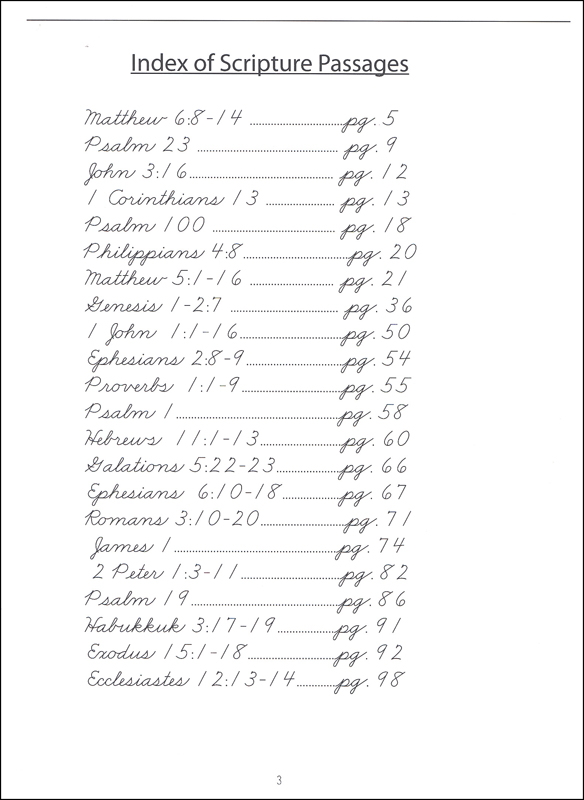 Index of Scripture Passages
Matthew 6:8-14 ........................pg. 5
Psalm 23 ........................ pg. 9
John 3:16........................ pg. 12
1 Corinthians 13 ................ pg. 13
Psalm 100 ........................ pg. 18
Philippians 4:8........................pg. 20
Matthew 5:1-16 ........................ pg. 21
Genesis 1-2:7 ........................ pg. 36
1 John 1:1-16........................pg. 50
Ephesians 2:8-9........................pg. 54
Proverbs 1:1-9........................pg. 55
Psalm 1........................pg. 58
Hebrews 11:1-13........................pg. 60
Galations 5:22-23................pg. 66
Ephesians 6:10-18................pg. 67
Romans 3:10-20........................pg. 71
James 1........................pg. 74
2 Peter 1:3-11........................pg. 82
Psalm 19........................pg. 86
Habukkuk 3:17-19................pg. 91
Exodus 15:1-18........................pg. 92
Ecclesiastes 12:13-14............pg. 98
3